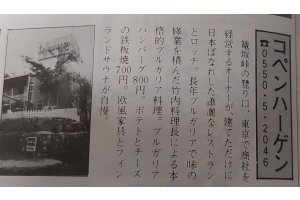 コペンハーゲン
☎0550・5・2046
籠坂峠の登り口、東京で商社を
経営するオーナーが、建てただけに
日本ばなれした瀟洒なレストラン
とロッヂ。長年ブルガリアで味の
修業を積んだ竹内料理長による本
格的ブルガリア料理。ブルガリア
ハンバーグ800円。ポテトとチーズ
の鉄板焼700円。欧風家具とフィン
ランドサウナが自慢。